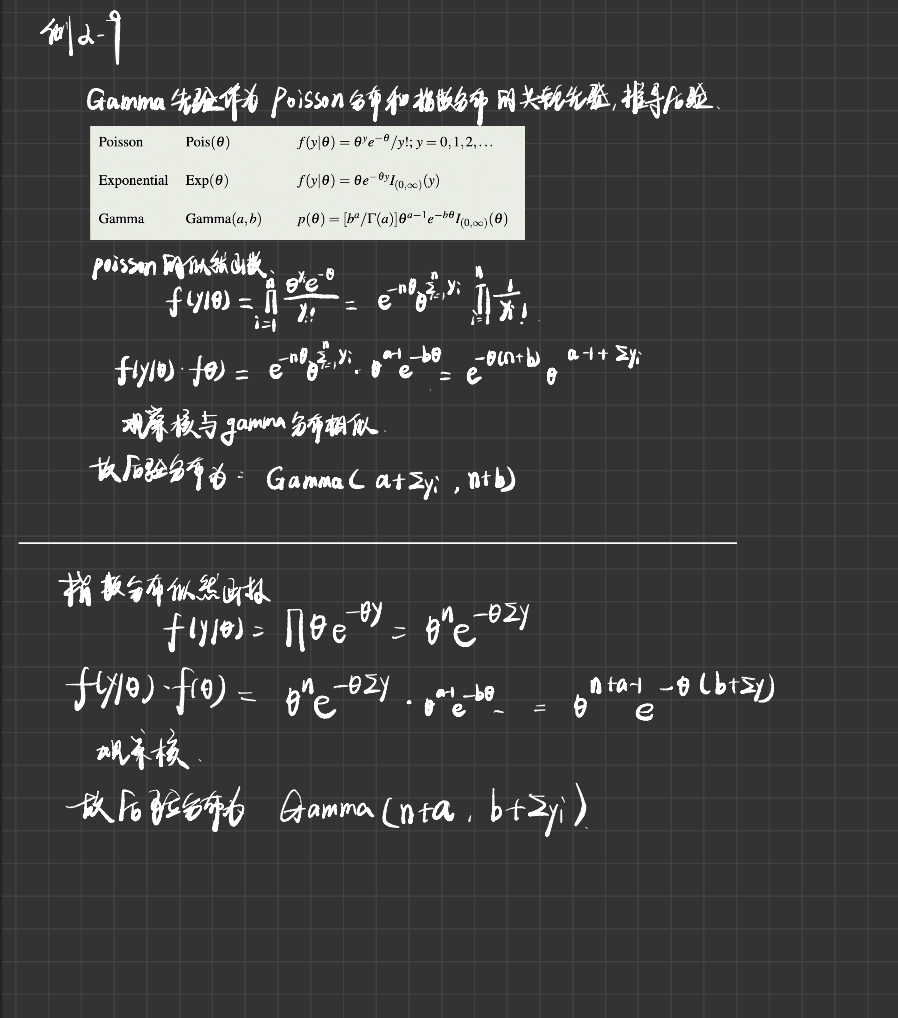 例2-9
Gamma先验作为 Poisson分布和指数分布的共轭先验,推导后验.
Poisson Pois(θ) f(y|θ) = θ^y e^{-θ}/y!; y = 0,1,2,...
Exponential Exp(θ) f(y|θ) = θe^{-θy}I_{(0,∞)}(y)
Gamma Gamma(a,b) p(θ) = [b^a/Γ(a)]θ^{a-1}e^{-bθ}I_{(0,∞)}(θ)
poisson的似然函数.
f(y|θ) = ∏_{i=1}^{n} θ^{y_i}e^{-θ}/y_i! = e^{-nθ}θ^{Σ_{i=1}^{n} y_i} ∏_{i=1}^{n} 1/y_i!
f(y|θ)·f(θ) = e^{-nθ}θ^{Σ_{i=1}^{n} y_i}·θ^{a-1}e^{-bθ} = e^{-θ(n+b)} θ^{a-1+Σy_i}
观察核与gamma分布相似.
故后验分布为: Gamma(a+Σy_i, n+b)
指数分布似然函数
f(y|θ) = ∏θe^{-θy} = θ^n e^{-θΣy}
f(y|θ)·f(θ) = θ^n e^{-θΣy}·θ^{a-1}e^{-bθ} = θ^{n+a-1} e^{-θ(b+Σy)}
观察核.
故后验分布为 Gamma(n+a, b+Σy_i).